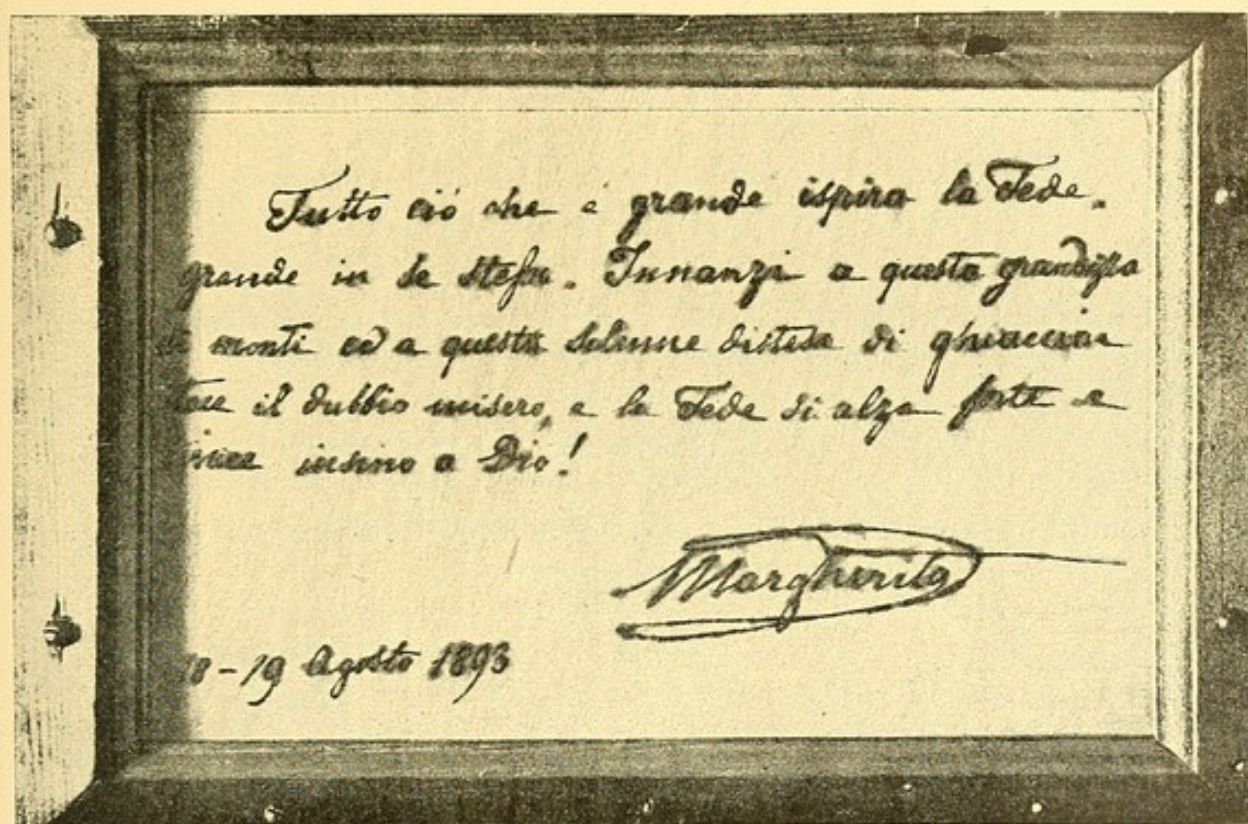 Tutto ciò che è grande ispira la Fede,
grande in se stessa. Innanzi a questa grandezza
monti ed a questa solenne distesa di ghiacciai
tace il dubbio misero, e la Fede si alza forte e
insino a Dio!
Margherita
18-19 Agosto 1893